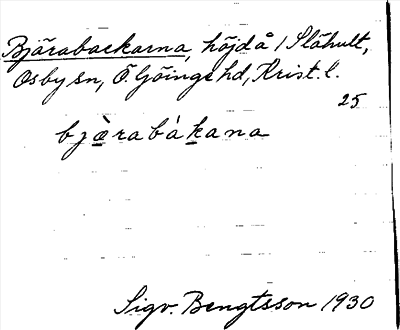 Bjärabackarna, höjd å 1 Slähult,
Osby sn, Ö Göinge hd, Krist. l.
25
bjæ̀rabákana
Sigv. Bengtsson 1930